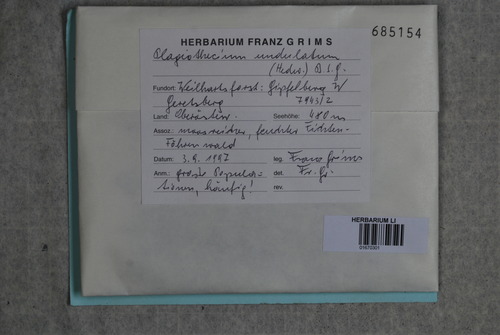 HERBARIUM FRANZ GRIMS
685154
Plagiothecium undulatum
(Hedw.) B.S.G.
Fundort: Weilhartsforst: Gipfelberg W
Geretsberg 7943/2
Land: Oberösterr. Seehöhe: 480 m
Assoz.: moosreicher, feuchter Fichten-
Föhrenwald
Datum: 3.9.1997 leg. Franz Grims
Anm.: große Popula- det. Fr. Gr.
tionen, häufig! rev.
HERBARIUM LI
01670301